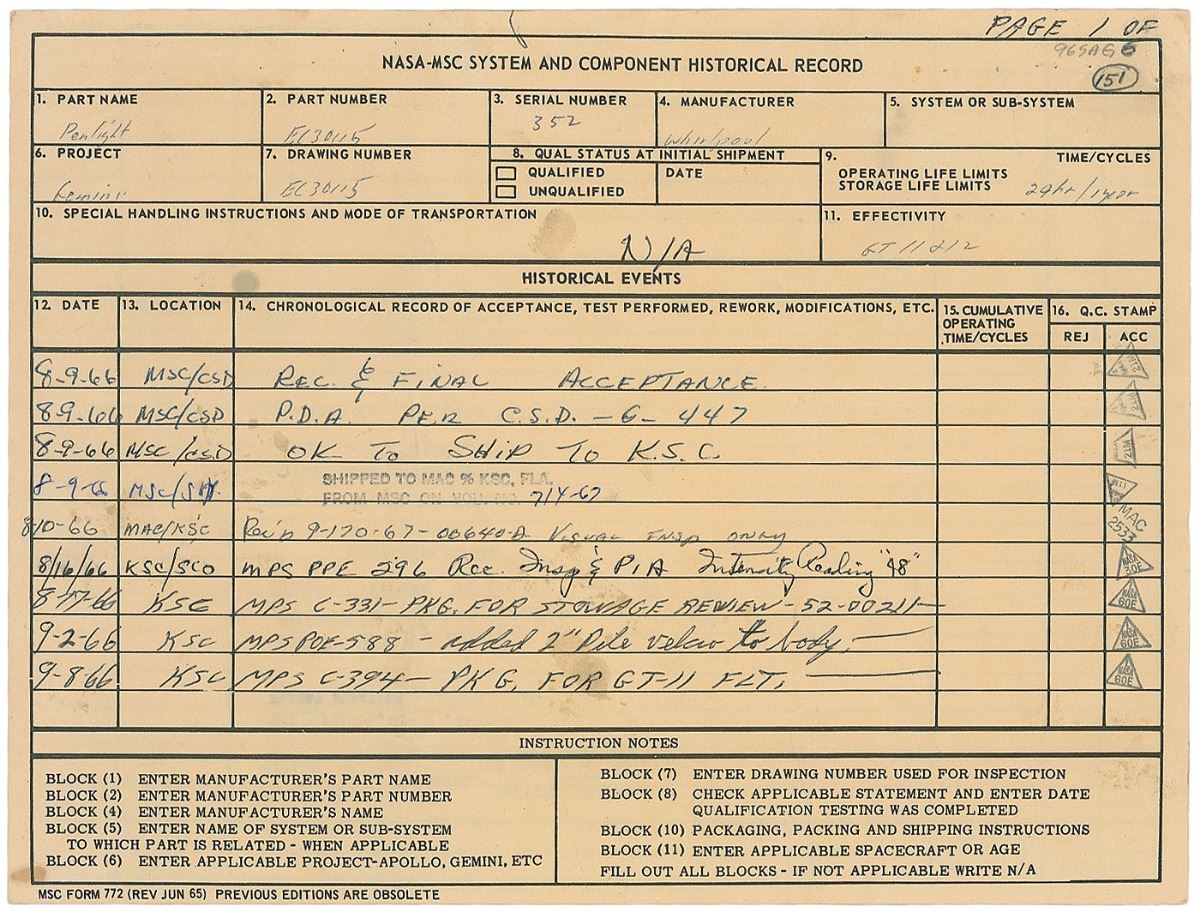 PAGE 1 OF
965AG6
151
NASA-MSC SYSTEM AND COMPONENT HISTORICAL RECORD
1. PART NAME
Penlight
2. PART NUMBER
EC30115
3. SERIAL NUMBER
352
4. MANUFACTURER
Whirlpool
5. SYSTEM OR SUB-SYSTEM
6. PROJECT
Gemini
7. DRAWING NUMBER
EC30115
8. QUAL STATUS AT INITIAL SHIPMENT
QUALIFIED
UNQUALIFIED
DATE
9. TIME/CYCLES
OPERATING LIFE LIMITS
STORAGE LIFE LIMITS
2qhr/1year
10. SPECIAL HANDLING INSTRUCTIONS AND MODE OF TRANSPORTATION
N/A
11. EFFECTIVITY
GT 11 & 12
HISTORICAL EVENTS
12. DATE 13. LOCATION 14. CHRONOLOGICAL RECORD OF ACCEPTANCE, TEST PERFORMED, REWORK, MODIFICATIONS, ETC. 15. CUMULATIVE OPERATING TIME/CYCLES 16. Q.C. STAMP
REJ ACC
8-9-66 MSC/CSD REC. & FINAL ACCEPTANCE.
8-9-66 MSC/CSD P.D.A. PER C.S.D. - G- 447
8-9-66 MSC/CSD OK TO SHIP TO K.S.C. 21M
8-9-66 MSC/ SHIPPED TO MAC % KSC, FLA.
FROM MSC ON VOU. NO. 714-67
8/10-66 MAC/KSC Rec'd 9-170-67-00640-A VISUAL INSP ONLY MAC 2533
8/16/66 KSC/SCO MPS PPE 296 Rec. Insp & PIA Intensity Reading "48" NASA 30E
8-17-66 KSC MPS C-331- PKG. FOR STOWAGE REVIEW - 52-00211- NASA 60E
9-2-66 KSC MPS POE-588 - added 2" Pile velcro to body. NASA 60E
9-8-66 KSC MPS C-394- PKG. FOR GT-11 FLT. NASA 60E
INSTRUCTION NOTES
BLOCK (1) ENTER MANUFACTURER'S PART NAME
BLOCK (2) ENTER MANUFACTURER'S PART NUMBER
BLOCK (4) ENTER MANUFACTURER'S NAME
BLOCK (5) ENTER NAME OF SYSTEM OR SUB-SYSTEM
TO WHICH PART IS RELATED - WHEN APPLICABLE
BLOCK (6) ENTER APPLICABLE PROJECT-APOLLO, GEMINI, ETC
BLOCK (7) ENTER DRAWING NUMBER USED FOR INSPECTION
BLOCK (8) CHECK APPLICABLE STATEMENT AND ENTER DATE
QUALIFICATION TESTING WAS COMPLETED
BLOCK (10) PACKAGING, PACKING AND SHIPPING INSTRUCTIONS
BLOCK (11) ENTER APPLICABLE SPACECRAFT OR AGE
FILL OUT ALL BLOCKS - IF NOT APPLICABLE WRITE N/A
MSC FORM 772 (REV JUN 65) PREVIOUS EDITIONS ARE OBSOLETE